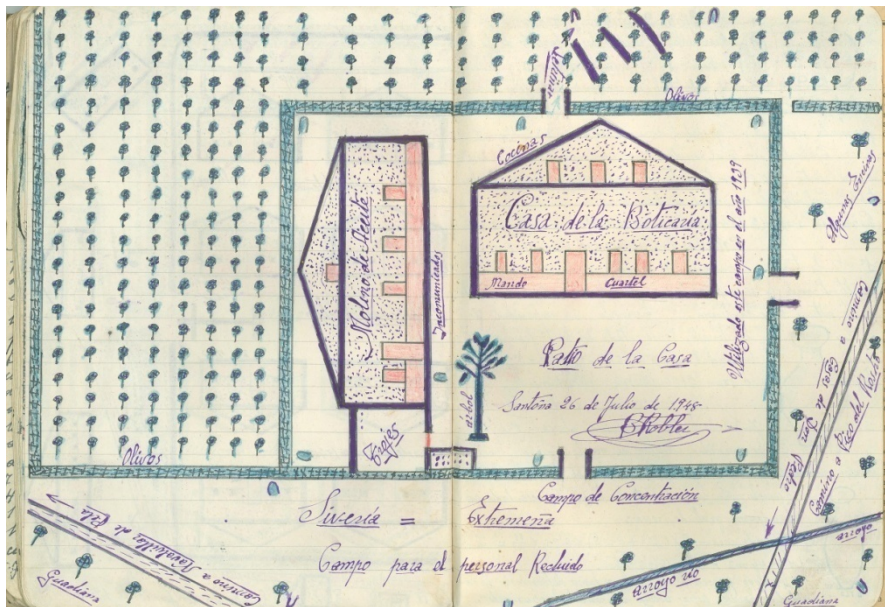 Olivos
Cocinas
Casa de la Boticaria
Mando
Cuartel
Molino de Aceite
Incomunicados
Utilizado este campo en el año 1939
Algunas Encinas
Patio de la Casa
Santoña 26 de Julio de 1948
CRobles
arbol
Trojes
Olivos
Campo de Concentración
Siveria = Extremeña
Campo para el personal Recluido
Camino a Navalvillar de Pela
Guadiana
Camino a Casas de Don Pedro
Camino a
arroyo
arroyo
Guadiana